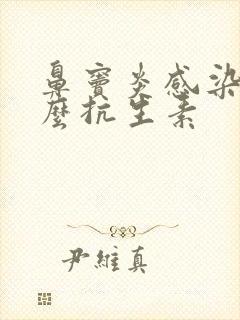 鼻窦炎感染
麼抗生素
尹維真